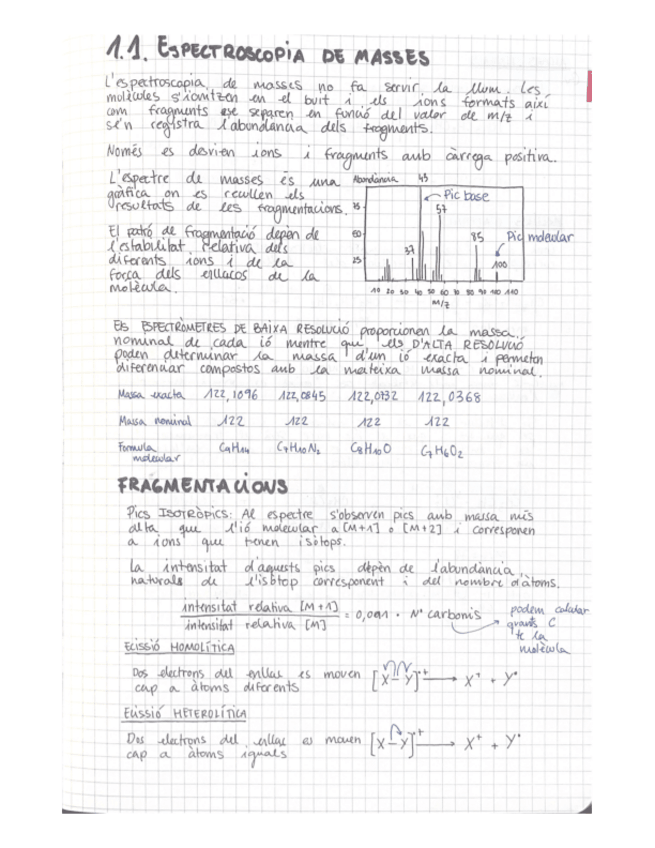 1.1. ESPECTROSCOPIA DE MASSES
L'espectroscopia de masses no fa servir la llum. Les
molècules s'ionitzen en el buit i els ions formats així
com fragments es separen en funció del valor de m/z i
se'n registra l'abundància dels fragments.
Només es desvien ions i fragments amb càrrega positiva.
L'espectre de masses és una
gràfica on es recullen els
resultats de les fragmentacions.
El patró de fragmentació depèn de
l'estabilitat relativa dels
diferents ions i de la
força dels enllaços de la
molècula.
Abundància 43
Pic base
75
57
50
85 Pic molecular
37
25
100
10 20 30 40 50 60 70 80 90 100 110
m/z
Els ESPECTRÒMETRES DE BAIXA RESOLUCIÓ proporcionen la massa
nominal de cada ió mentre que els D'ALTA RESOLUCIÓ
poden determinar la massa d'un ió exacta i permeten
diferenciar compostos amb la mateixa massa nominal.
Massa exacta 122,1096 122,0845 122,0732 122,0368
Massa nominal 122 122 122 122
Formula C9H14 C7H10N2 C8H10O C7H6O2
molecular
FRAGMENTACIONS
Pics ISOTRÒPICS: Al espectre s'observen pics amb massa més
alta que l'ió molecular a [M+1] o [M+2] i corresponen
a ions que tenen isòtops.
La intensitat d'aquests pics depèn de l'abundància
naturals de l'isòtop corresponent i del nombre d'àtoms.
intensitat relativa [M+1]
intensitat relativa [M]
= 0,011 · Nº carbonis
podem calcular
quants C
te la
molècula
ECISSIÓ HOMOLÍTICA
Dos electrons del enllaç es moven [X-Y]·+ → X+ + Y·
cap a àtoms diferents
ECISSIÓ HETEROLÍTICA
Dos electrons del enllaç es mouen [X-Y]·+ → X+ + Y·
cap a àtoms iguals